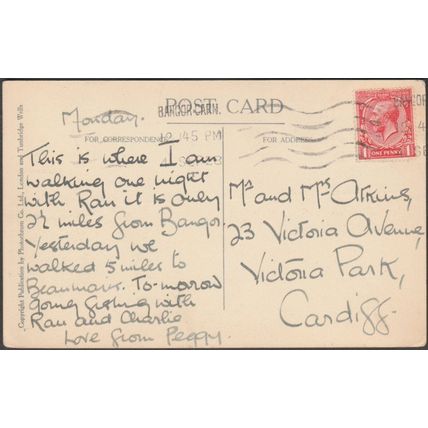 POST CARD
FOR CORRESPONDENCE
FOR ADDRESS
BANGOR CARN.
12 45 PM
ONE PENNY
Monday.
This is where I am
walking one night
with Ran it is only
2½ miles from Bangor.
Yesterday we
walked 5 miles to
Beaumaris. To-morrow
going fishing with
Ran and Charlie
Love from Peggy.
Mr and Mrs Atkins,
23 Victoria Avenue,
Victoria Park,
Cardiff.
Copyright Publication by Photochrom Co. Ltd., London and Tunbridge Wells